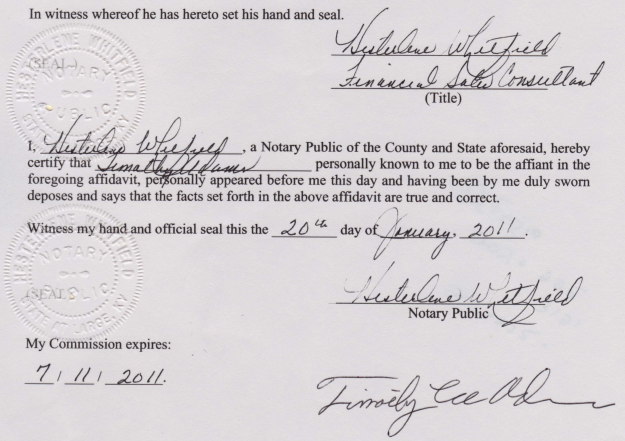 In witness whereof he has hereto set his hand and seal.
HESTERLENE WHITFIELD
NOTARY
PUBLIC
STATE AT LARGE, KY
(SEAL)
Hesterlene Whitfield
Financial Sales Consultant
(Title)
I, Hesterlene Whitfield, a Notary Public of the County and State aforesaid, hereby
certify that Timothy Adams personally known to me to be the affiant in the
foregoing affidavit, personally appeared before me this day and having been by me duly sworn
deposes and says that the facts set forth in the above affidavit are true and correct.
Witness my hand and official seal this the 20th day of January, 2011.
HESTERLENE WHITFIELD
NOTARY
PUBLIC
STATE AT LARGE, KY
(SEAL)
Hesterlene Whitfield
Notary Public
My Commission expires:
7/11/2011.
Timothy Lee Adams